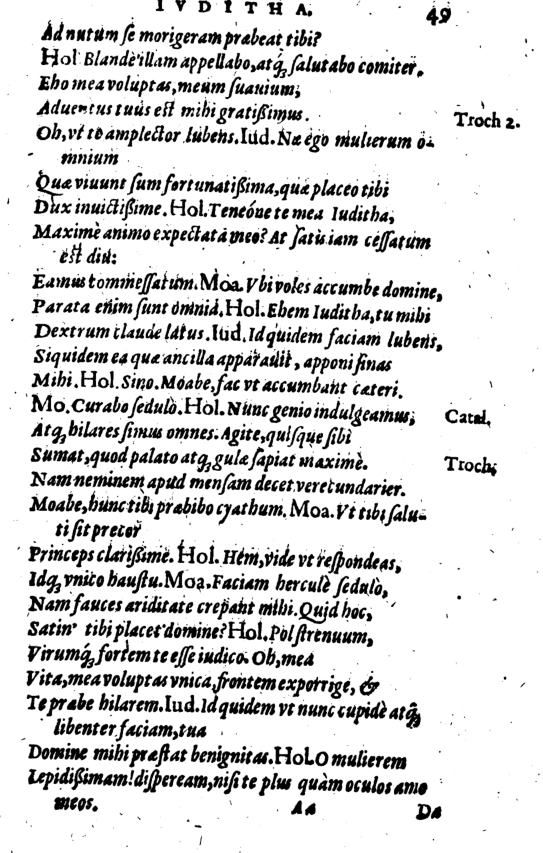 IVDITHA. 49
Ad nutum se morigeram præbeat tibi?
Hol Blandè illam appellabo, atq́; salutabo comiter.
Eho mea voluptas, meum suauium,
Aduentus tuus est mihi gratißimus. Troch 2.
Oh, vt te amplector lubens. Iud. Næ ego mulierum o-
mnium
Quæ viuunt sum fortunatißima, quæ placeo tibi
Dux inuictißime. Hol. Teneóne te mea Iuditha,
Maximè animo expectatá meo? At satis iam ceßatum
est diu:
Eamus commeßatum. Moa. Vbi voles accumbe domine,
Parata enim sunt omnia. Hol. Ehem Iuditha, tu mihi
Dextrum claude latus. Iud. Id quidem faciam lubens,
Siquidem ea quæ ancilla apparauit, apponi sinas
Mihi. Hol. Sino. Moabe, fac vt accumbant cæteri.
Mo. Curabo sedulò. Hol. Nunc genio indulgeamus, Catal.
Atq́; hilares simus omnes. Agite, quisque sibi
Sumat, quod palato atq́; gulæ sapiat maximè. Troch.
Nam neminem apud mensam decet verecundarier.
Moabe, hunc tibi præbibo cyathum. Moa. Vt tibi salu-
ti sit precor
Princeps clarißimè. Hol. Hem, vide vt respondeas,
Idq́; vnico haustu. Moa. Faciam herculè sedulò,
Nam fauces ariditate crepant mihi. Quid hoc,
Satin' tibi placet domine? Hol. Pol strenuum,
Virumq́; fortem te esse iudico. Oh, mea
Vita, mea voluptas vnica, frontem exporrige, &
Te præbe hilarem. Iud. Id quidem vt nunc cupidè atq́;
libenter faciam, tua
Domine mihi præstat benignitas. Hol. O mulierem
Lepidißimam! dispeream, nisi te plus quàm oculos amo
meos. Aa Da